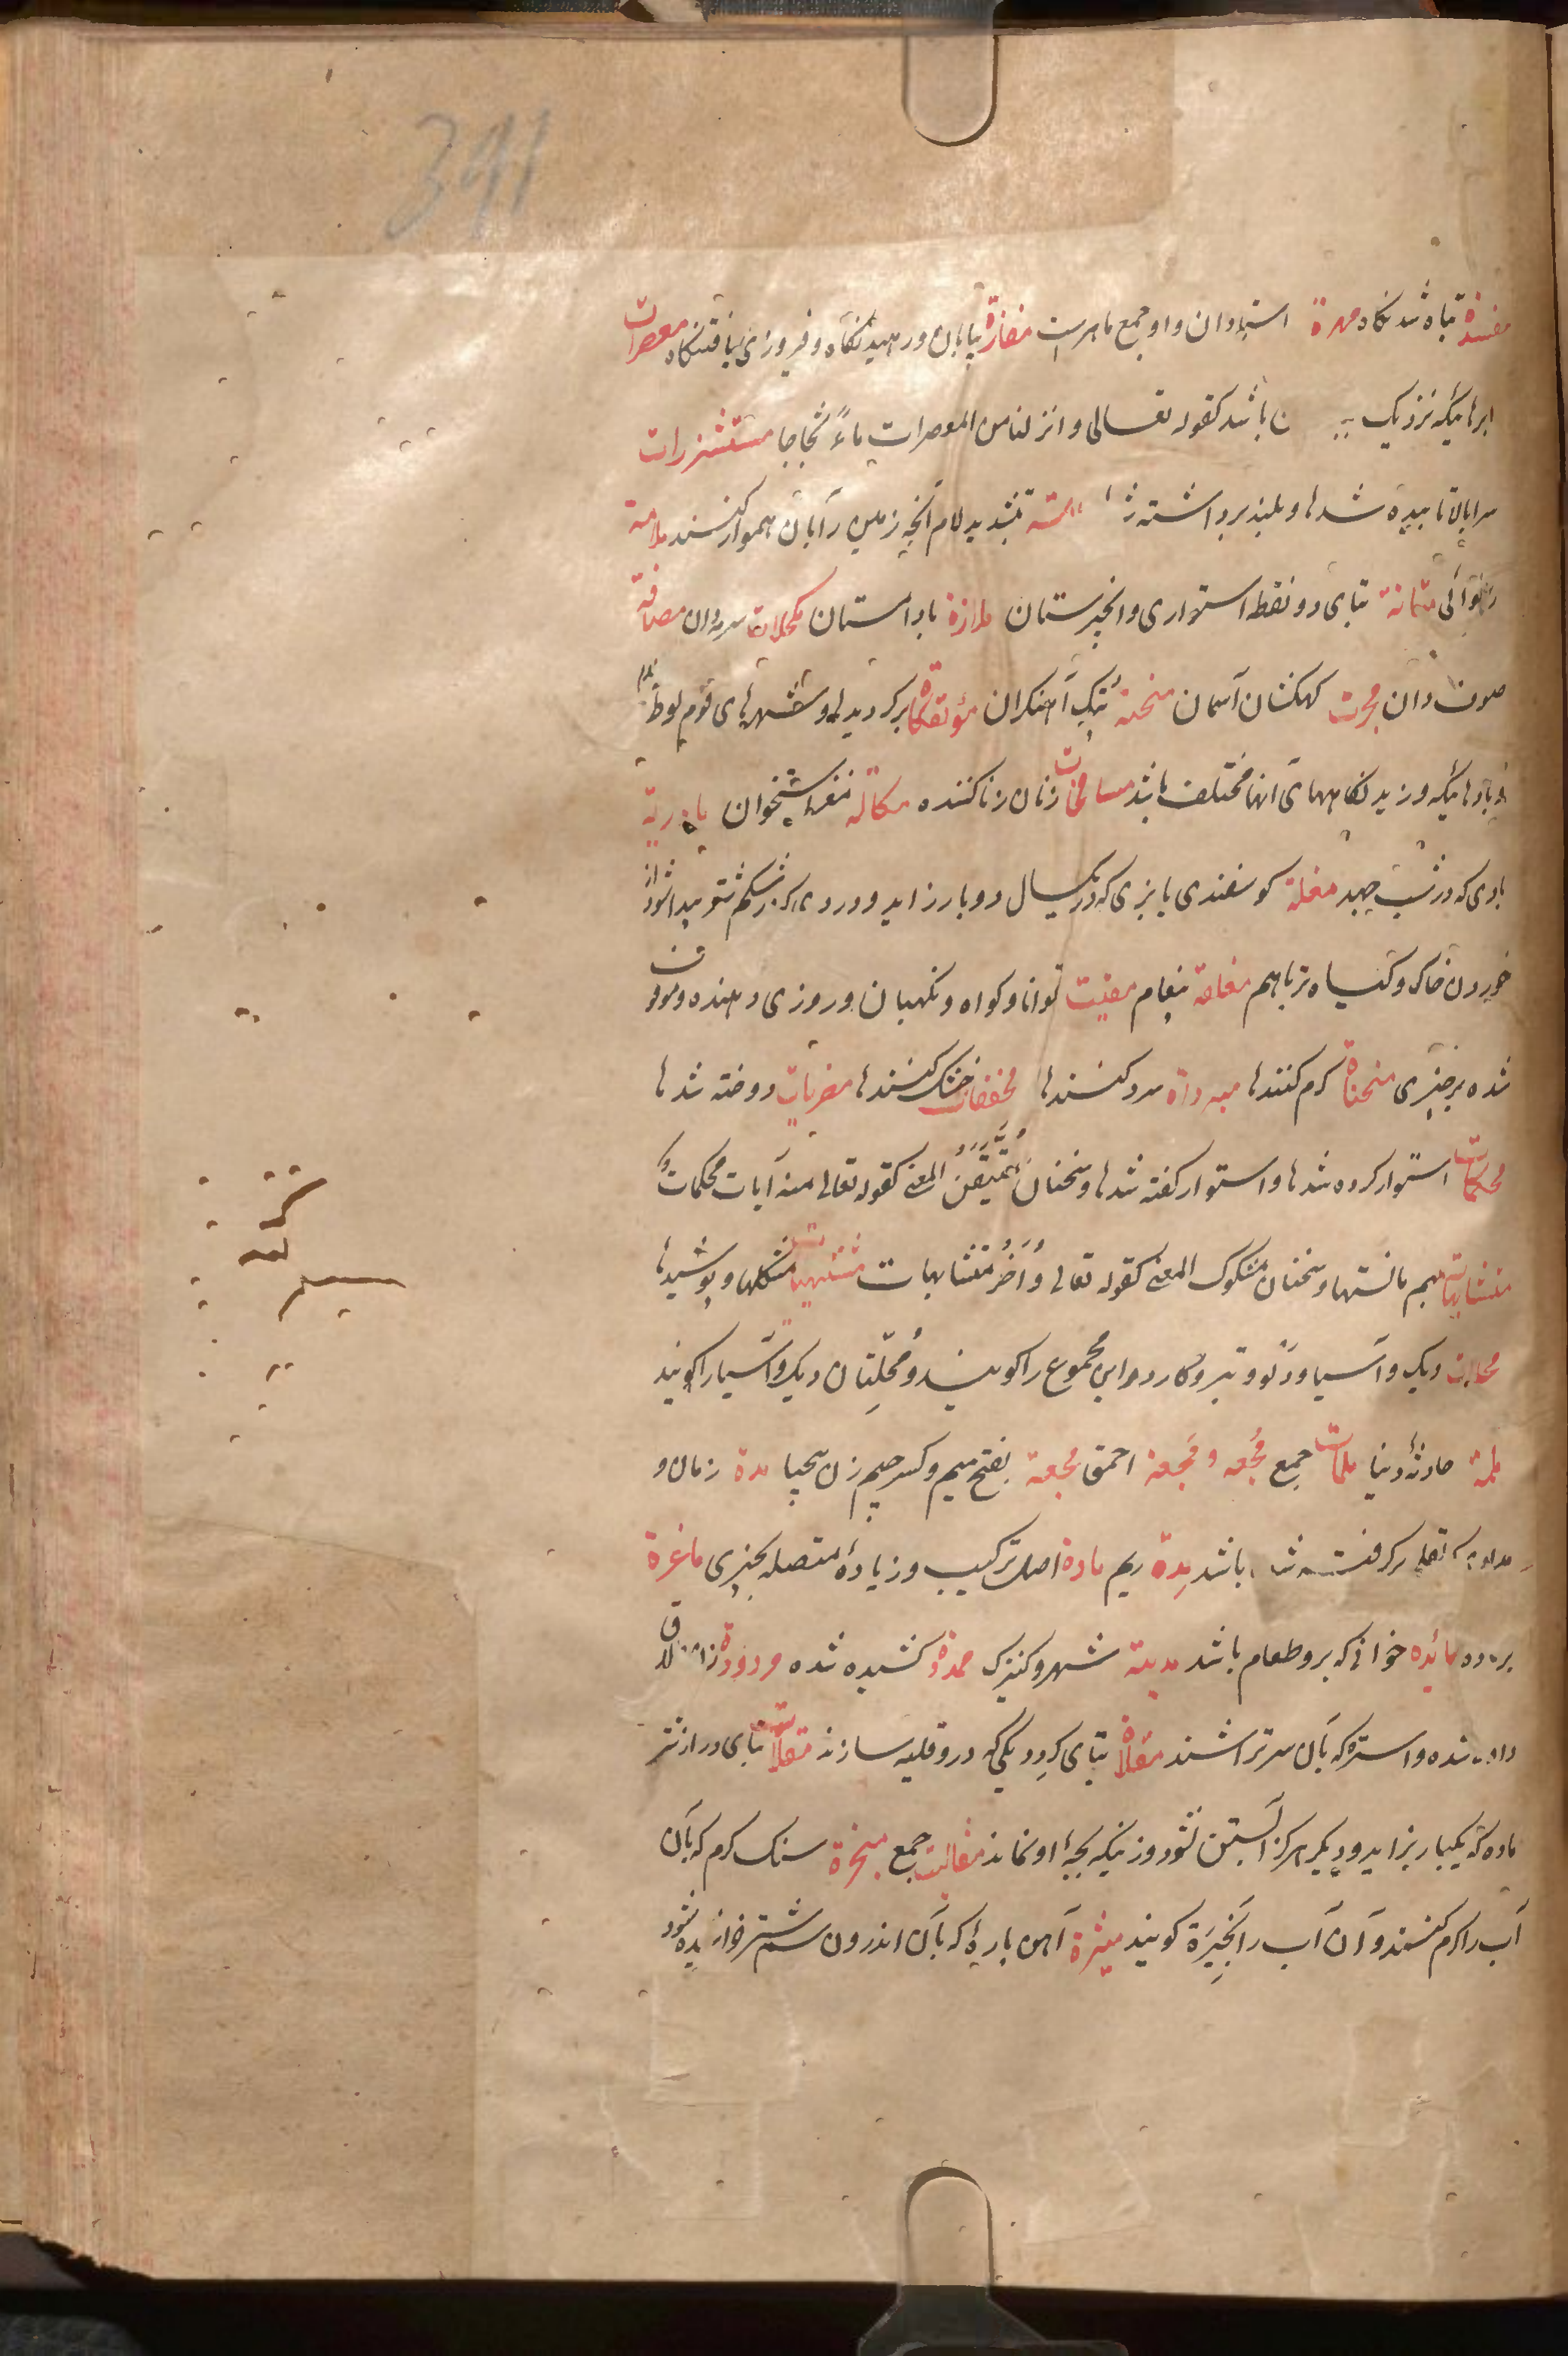 391
مفسدة تباه شدنگاه مهرة استادان و او جمع ماهرست مفازة بیابان و رهیدنگاه و فیروزی یافتنگاه معصرات
ابرهائیکه نزدیک باشد کقوله تعالی و انزلنا من المعصرات ماءً ثجاجا مستشزرات
سرابالا تابیده شدها و بلند برداشته بتشدید لام آنچه زمین را بآن هموار کنند ملامة
متانة بتای دو نقطه استواری و انجیرستان ملازة باداستان مکحلات سرمه دان مصافة
صوت دان مجرت کهکشان آسمان منحتة پتک آهنگران مؤتفکات برگردیدها و شهرهای قوم لوط
و بادهائیکه وزیدنگاههای آنها مختلف باشد مسافحات زنان زنا کننده مکاکة مغز استخوان باردیة
بادی که در شب جهد مغلة گوسفندی یا بزی که در یکسال دو بار زاید و دردی که در شکم شتر پیدا شود از
خوردن خاک و گیاه تر باهم مغلغة پیغام مقیت توانا و گواه و نگهبان و روزی دهنده و موقوف
شده بر چیزی مسخنات گرم کنندها مبردات سرد کنندها مجففات خشک کنندها مضربات دوخته شدها
محکمات استوار کرده شدها و استوار گفته شدها و سخنان مُتَیَقَّنُ المعنی کقوله تعالی منه آیات محکمات و
متشابهات بهم مانستها و سخنان مشکوک المعنی کقوله تعالی وَ اُخَرُ متشابهات مشتبهات مشکلها و پوشیدها
محلات دیک و آسیا و دلو و تبر و کارد و این مجموع را گویند و مُحِلّتان دیک و آسیا را گویند
ملمة حادثهٔ دنیا ملمات جمع مُجعه و مَجعة احمق مجعة بفتح میم و کسر جیم زن بیحیا مدة زمان و
باشد مِدة ریم مادة اصل ترکیب و زیادهٔ متصله بچیزی ماغرة
مائده خوانی که برو طعام باشد مدینة شهر و کنیزک ممدة کشیده شده مردودة زن طلاق
داده شده و استره که بآن سر تراشند مقلاة بتای گرد دیگی که درو قلیه سازند مقلات بتای دراز شتر
ماده که یکبار بزاید و دیگر هرگز آبستن نشود و زنیکه بچهٔ او نماند مقالیت جمع مِنجرة سنگ گرم که بآن
آب را گرم کنند و آن آب را نَجِیرَة گویند میثرة آهن پارهٔ که بآن اندرون سم شتر خراشیده شود